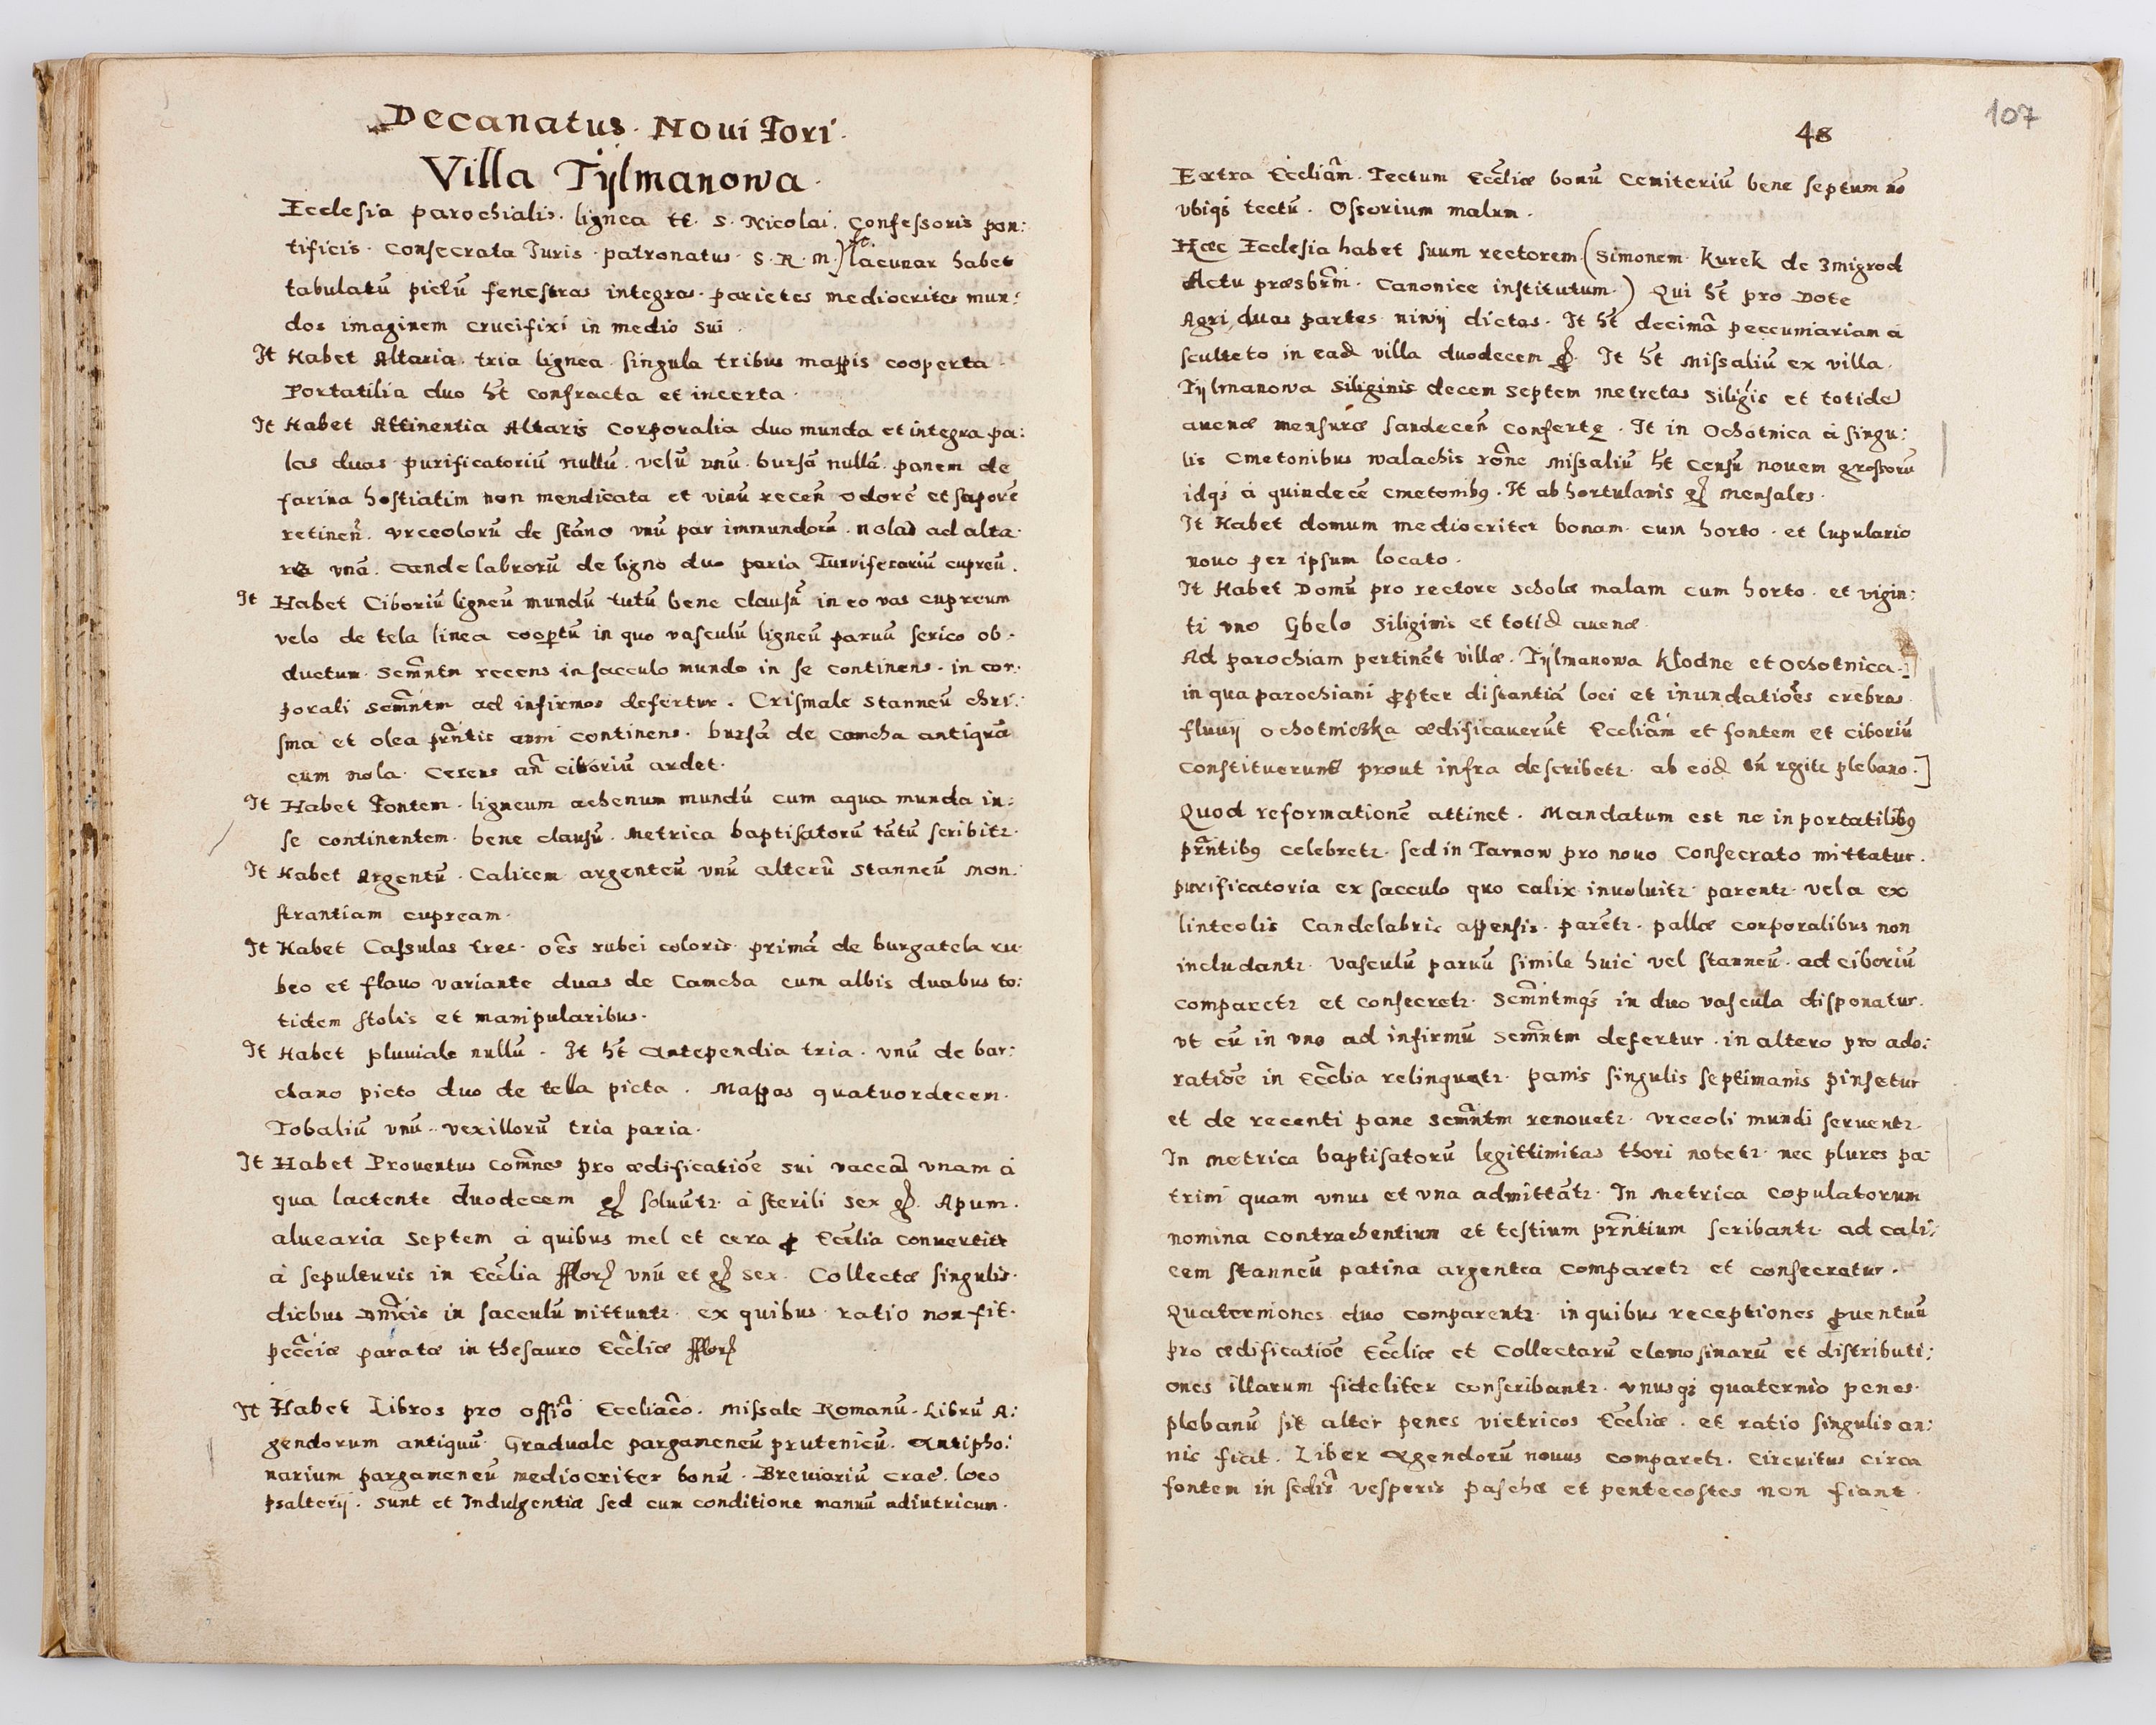 Decanatus. Noui Fori.
Villa Tÿlmanowa.
Ecclesia parochialis. lignea tt. S. Nicolai. Confessoris pon:
tificis. Consecrata Juris. patronatus. S. R. M.) lacunar habet
tabulatũ pictũ fenestras integras. parietes mediocriter mun:
dos imaginem crucifixi in medio sui.
Jt Habet Altaria. tria lignea. singula tribus mappis cooperta.
Portatilia duo ht̃ confracta et incerta.
Jt Habet Attinentia Altaris Corporalia duo munda et integra pa:
las duas. purificatoriũ nullũ. velũ vnũ. bursã nullã. panem de
farina hostiatim non mendicata et vinũ recen̄ odorẽ et saporẽ
retinen̄. vrceolorũ de stãno vnũ par immundorũ. nolas ad alta:
ria vnã. candelabrorũ de ligno duo paria Turriferariũ cupreũ.
Jt Habet Ciboriũ ligneũ mundũ tutũ bene clausũ in eo vas cupreum
velo de tela linea coop̃tũ in quo vasculũ ligneũ paruũ serico ob:
ductum. Scm̃ntm recens in sacculo mundo in se continens. in cor:
porali scm̃ntm ad infirmos defertur. Crismale stanneũ chri:
sma et olea prñtis anni continens. bursã de camcha antiquã
cum nola. Cereus añ ciboriũ ardet.
Jt Habet Fontem. ligneum aehenum mundũ cum aqua munda in:
se continentem. bene clausũ. Metrica baptisatorũ tãtũ scribitr.
Jt Habet Argentũ. Calicem argenteũ vnũ alterũ stanneũ mon:
strantiam cupream.
Jt Habet Cassulas tres. oẽs rubei coloris. primã de burgatela ru:
beo et flauo variante duas de Camcha cum albis duabus to:
tidem stolis et manipularibus.
Jt Habet pluuiale nullũ. Jt ht̃ antependia tria. vnũ de bar:
chano picto duo de tella picta. Mappas quatuordecem.
Tobaliũ vnũ. vexillorũ tria paria.
Jt Habet Prouentus com̃nes pro ædificatiõe sui vaccã vnam à
qua lactente duodecem gr soluũtr. à sterili sex gr. Apum.
aluearia septem à quibus mel et cera p Ecc̃lia conuertitr
à sepulturis in Ecc̃lia fflor vnũ et gr sex. Collectæ singulis.
diebus Dnĩcis in sacculũ mittuntr. ex quibus ratio non fit.
pecc̃iæ paratæ in thesauro Ecc̃liæ fflor
Jt Habet Libros pro offiõ Eccliãco. Missale Romanũ. Librũ A:
gendorum antiquũ. Graduale pargameneũ prutenicũ. Antipho:
narium pargameneũ mediocriter bonũ. Breuiariũ crac̃. loco
psalterij. sunt et Indulgentiæ sed cum conditione manuũ adiutricum.
107
48
Extra Eccliãm. Tectum Ecc̃liæ bonũ Cemiteriũ bene septum nõ
vbiq; tectũ. Osserium malum.
Hæc Ecclesia habet suum rectorem (Simonem Kurek de Zmigrod
Actu præsbrm̃. Canonice institutum.) Qui ht̃ pro Dote
Agri duas partes niwÿ dictas. Jt ht̃ decimã peccuniariam à
sculteto in ead villa duodecem gr. Jt ht̃ Missaliũ ex villa.
Tÿlmanowa Siliginis decem septem metretas siligĩs et totidẽ
auenæ mensuræ sandecen̄ confertę. Jt in Ochotnica à singu:
lis Cmetonibus walachis rõne Missaliũ ht̃ censũ nouem grossorũ
idq; à quindecẽ cmetonibꝰ. Jt ab hortulanis gr mensales.
Jt Habet domum mediocriter bonam. cum horto. et lupulario
nouo per ipsum locato.
Jt Habet Domũ pro rectore scholæ malam cum horto. et vigin:
ti vno Gbelo Siliginis et totid auenæ.
Ad parochiam pertinẽt villæ. Tÿlmanowa Kłodne et Ochotnica.]
in qua parochiani p̃pter distantiã loci et inundatiões crebras
fluuij Ochotnicżka ædificauerũt Eccliãm et fontem et ciboriũ
constituerunt prout infra describetr. ab eod tñ regitr plebano.]
Quod reformationẽ attinet. Mandatum est ne in portatilibꝰ
prñtibꝰ celebretr. sed in Tarnow pro nouo Consecrato mittatur.
purificatoria ex sacculo quo calix inuoluitr parentr. vela ex
linteolis Candelabris appensis. parẽtr. pallæ corporalibus non
includantr. vasculũ paruũ simile huic vel stanneũ. ad ciboriũ
comparetr et consecretr. Scm̃ntmq; in duo vascula disponatur.
vt cũ in vno ad infirmũ scm̃ntm defertur. in altero pro ado:
ratiõe in Ecc̃lia relinquatr. panis singulis septimanis pinsetur
et de recenti pane scm̃ntm renouetr. vrceoli mundi seruentr.
In Metrica baptisatorũ legittimitas thori notetr. nec plures pa:
trini quam vnus et vna admittãtr. In Metrica copulatorum
nomina contrahentium et testium prñtium scribantr. ad cali:
cem stanneũ patina argentea comparetr et consecratur.
Quaterniones duo comparentr. in quibus receptiones p̃uentuũ
pro ædificatiõe Ecc̃liæ et Collectarũ elemosinarũ et distributi:
ones illarum fideliter conscribantr. vnusq; quaternio penes
plebanũ sit alter penes victricos Ecc̃liæ. et ratio singulis an:
nis fiat. Liber Agendorũ nouus comparetr. Circuitus circa
fontem in sedĩs vesperis paschæ et pentecostes non fiant.